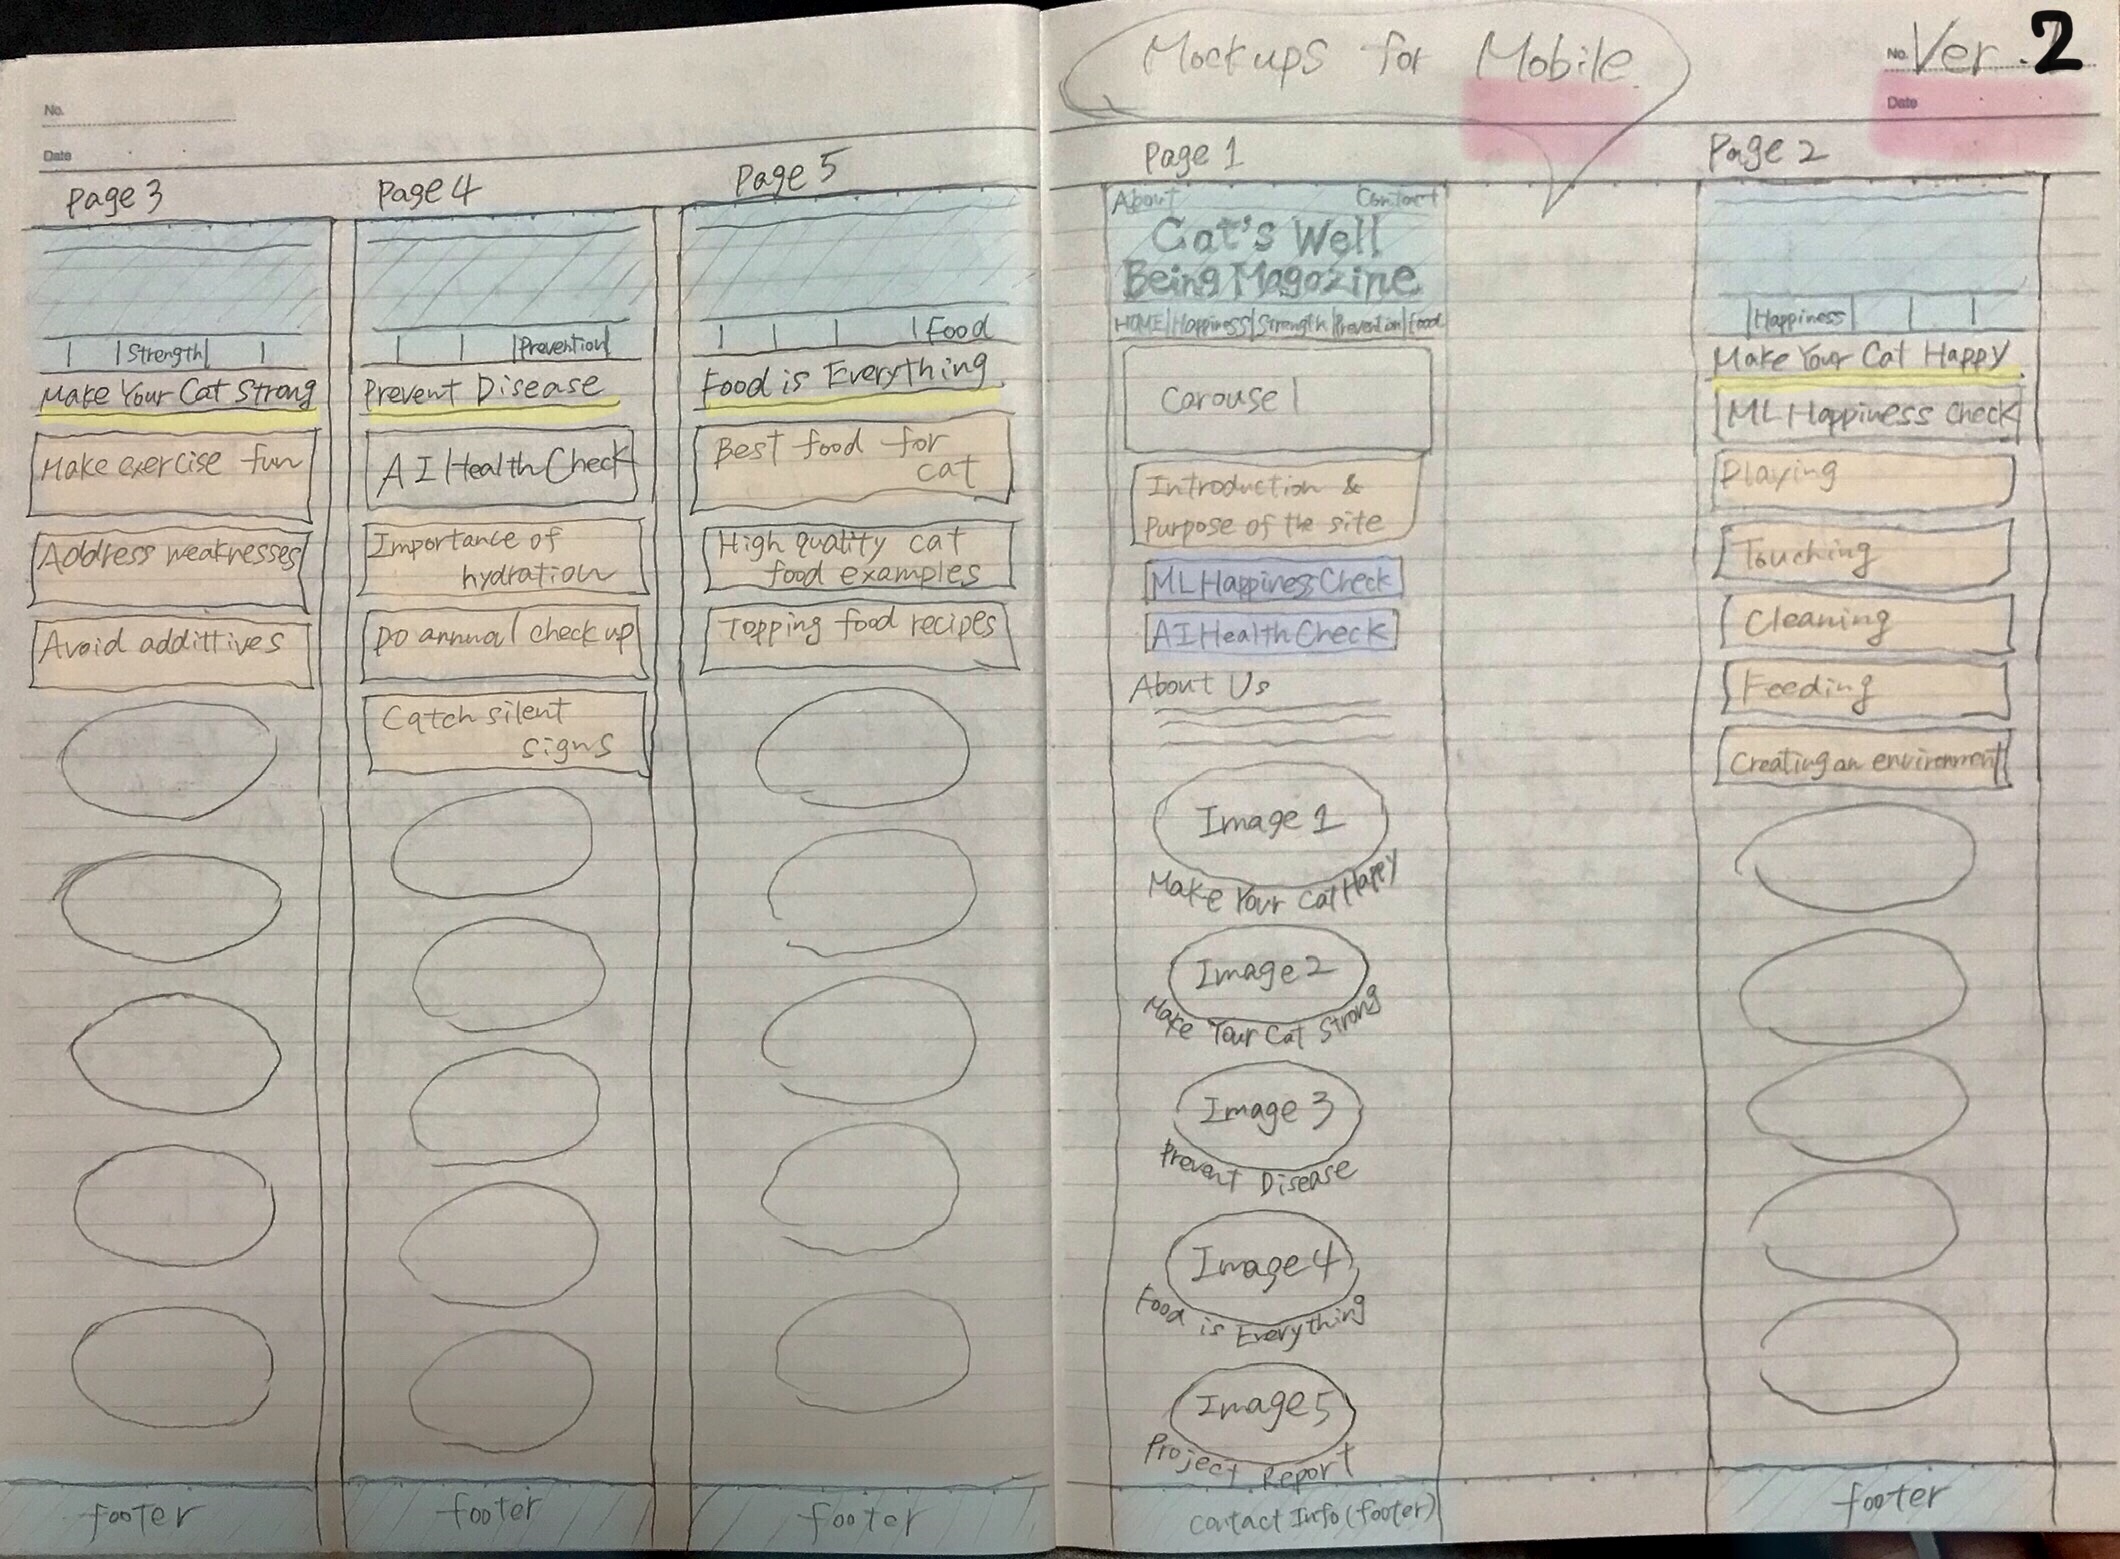 No.
Date
Page 3
Strength
Make Your Cat Strong
Make exercise fun
Address weaknesses
Avoid addittives
footer
Page 4
Prevention
Prevent Disease
AI Health Check
Importance of
hydration
Do annual check up
Catch silent
signs
footer
Page 5
Food
Food is Everything
Best food for
cat
High quality cat
food examples
Topping food recipes
footer
Mockups for Mobile
No. Ver. 2
Date
Page 1
About Contact
Cat's Well
Being Magazine
HOME Happiness Strength Prevention Food
Carousel
Introduction &
Purpose of the site
ML Happiness Check
AI Health Check
About Us
Image 1
Make Your Cat Happy
Image 2
Make Your Cat Strong
Image 3
Prevent Disease
Image 4
Food is Everything
Image 5
Project Report
Contact Info (footer)
Page 2
Happiness
Make Your Cat Happy
ML Happiness Check
Playing
Touching
Cleaning
Feeding
Creating an environment
footer